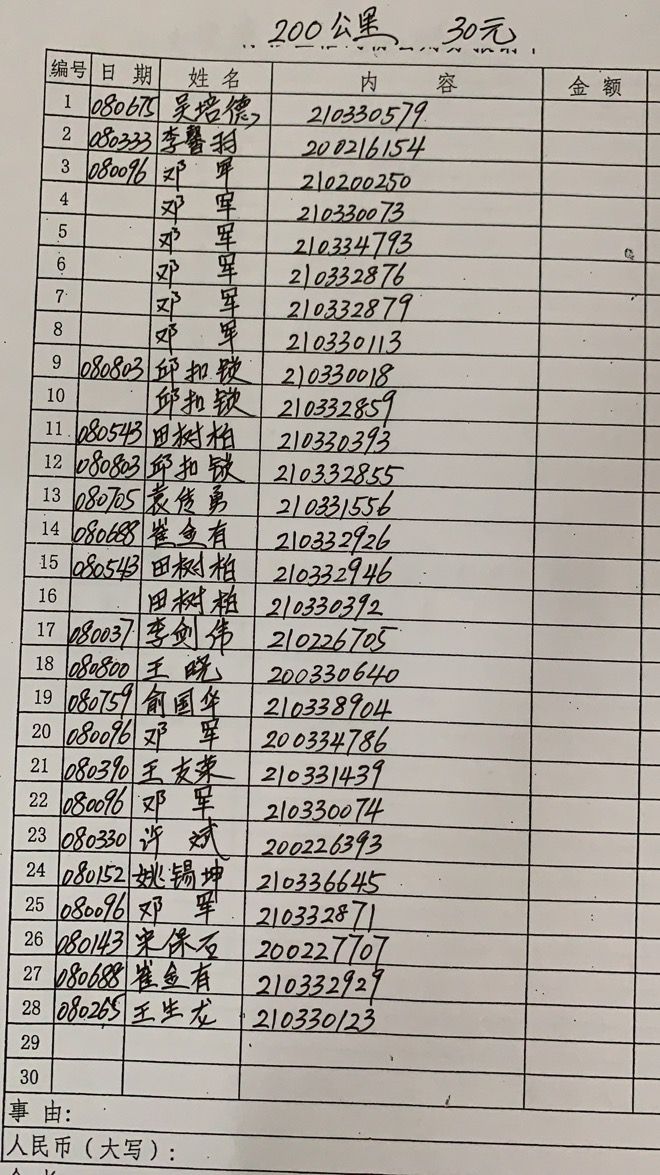 200公里 30元
编号 日期 姓名 内容 金额
1 080675 吴培德 210330579
2 080333 李馨羽 200216154
3 080096 邓军 210200250
4 邓军 210330073
5 邓军 210334793
6 邓军 210332876
7 邓军 210332879
8 邓军 210330113
9 080803 邱扣锁 210330018
10 邱扣锁 210332859
11 080543 田树柏 210330393
12 080803 邱扣锁 210332855
13 080705 袁传勇 210331556
14 080688 崔金有 210332926
15 080543 田树柏 210332946
16 田树柏 210330392
17 080037 李剑伟 210226705
18 080800 王晓 200330640
19 080759 俞国华 210338904
20 080096 邓军 200334786
21 080390 王友荣 210331439
22 080096 邓军 210330074
23 080330 许斌 200226393
24 080152 姚锡坤 210336645
25 080096 邓军 210332871
26 080143 宋保石 200227707
27 080688 崔金有 210332929
28 080265 王生龙 210330123
29
30
事由：
人民币（大写）：